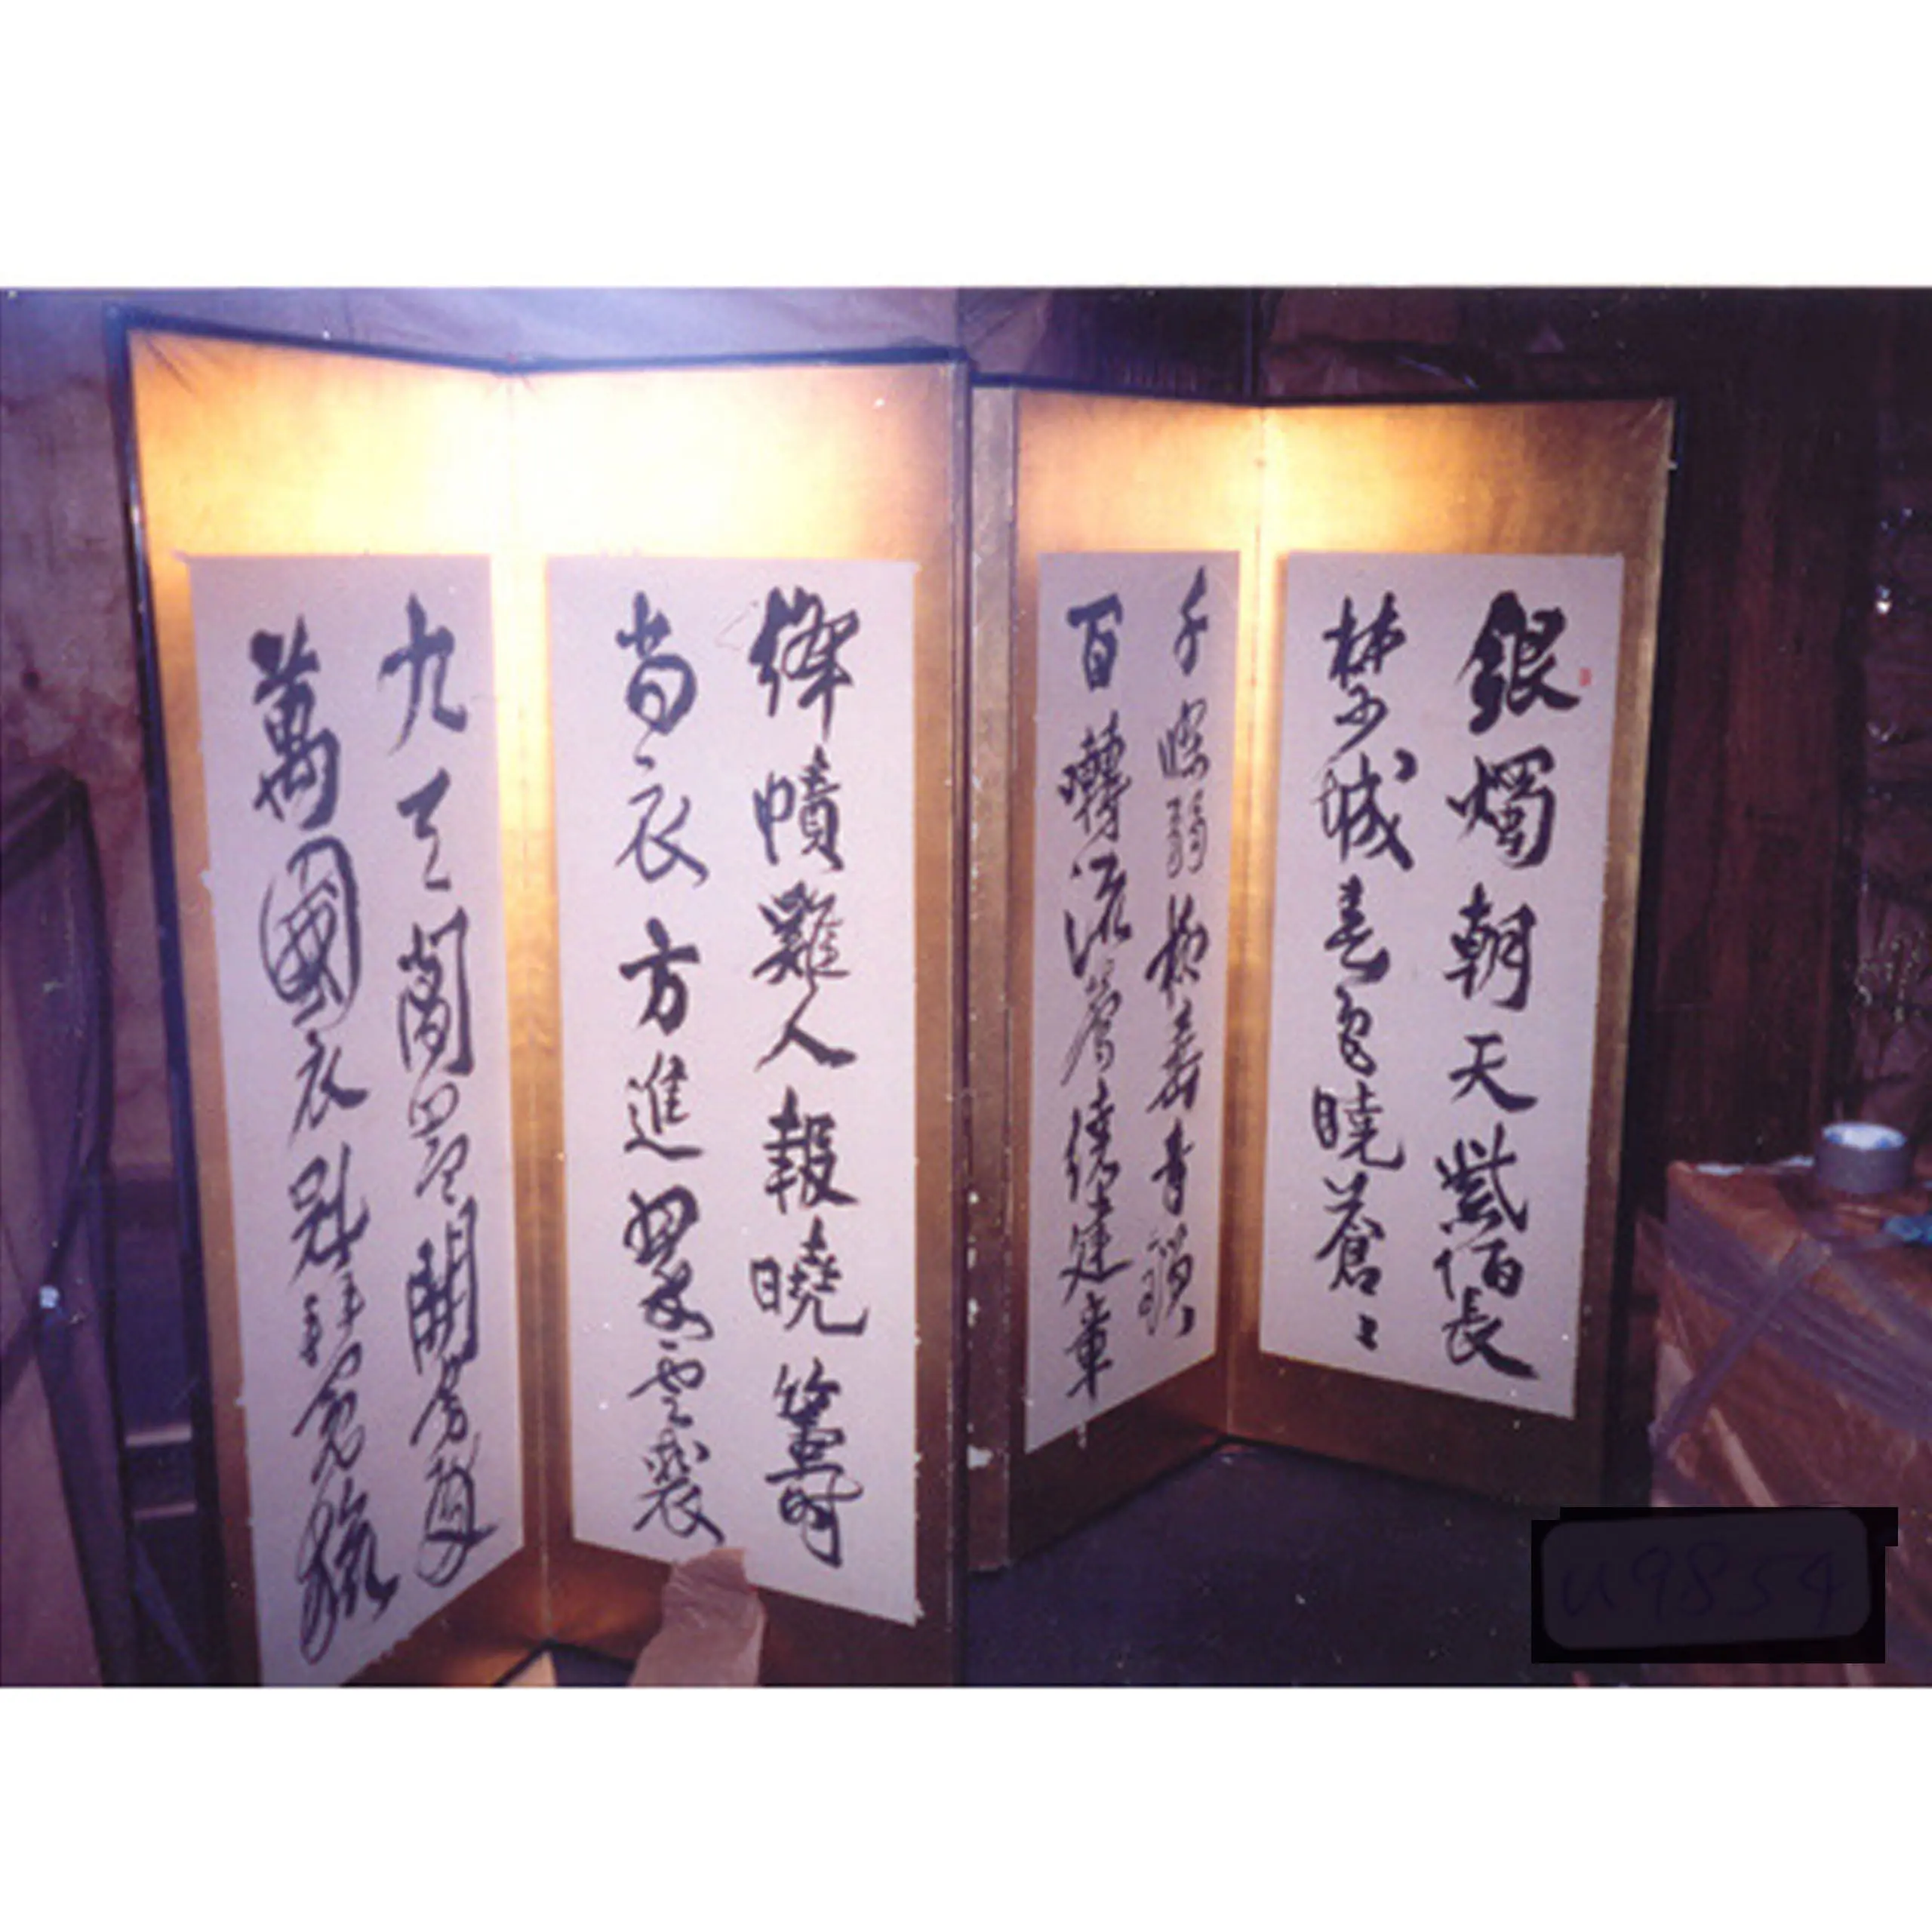 銀燭朝天紫陌長
禁城春色曉蒼々
千條弱柳垂青瑣
百囀流鶯繞建章
絳幘雞人報曉籌
尚衣方進翠雲裘
九天閶闔開宮殿
萬國衣冠拜冕旒
u9854